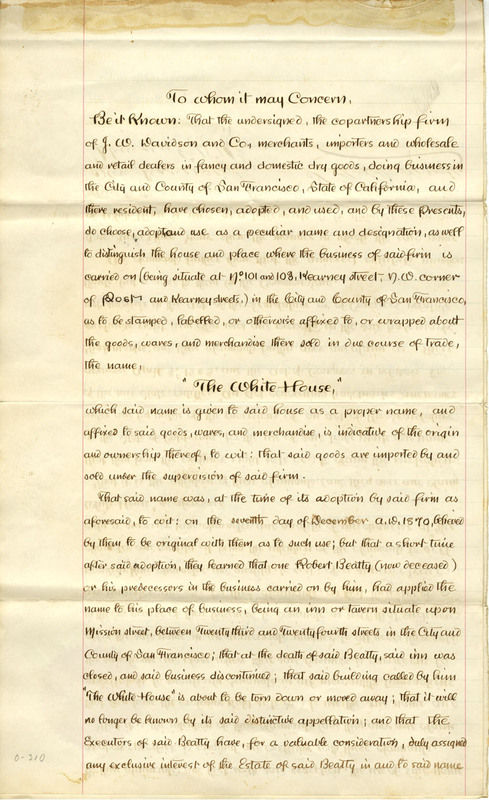 To whom it may Concern,
Be it Known: That the undersigned, the copartnership firm
of J. W. Davidson and Co, merchants, importers and wholesale
and retail dealers in fancy and domestic dry goods, doing business in
the City and County of San Francisco, State of California, and
there resident, have chosen, adopted, and used, and by these presents,
do choose, adopt and use as a peculiar name and designation, as well
to distinguish the house and place where the business of said firm is
carried on (being situate at No 101 and 103, Kearney street, N.W. corner
of Post and Kearney streets,) in the City and County of San Francisco,
as to be stamped, labelled, or otherwise affixed to, or wrapped about
the goods, wares, and merchandise there sold in due course of trade,
the name,
"The White House,"
which said name is given to said house as a proper name, and
affixed to said goods, wares, and merchandise, is indicative of the origin
and ownership thereof, to wit: that said goods are imported by and
sold under the supervision of said firm.
That said name was, at the time of its adoption by said firm as
aforesaid, to wit: on the seventh day of December A.D. 1870, believed
by them to be original with them as to such use; but that a short time
after said adoption, they learned that one Robert Beatty (now deceased)
or his predecessors in the business carried on by him, had applied the
name to his place of business, being an inn or tavern situate upon
Mission street, between Twenty third and Twenty fourth streets in the City and
County of San Francisco; that at the death of said Beatty, said inn was
closed, and said business discontinued; that said building called by him
"The White House" is about to be torn down or moved away; that it will
no longer be known by its said distinctive appellation; and that the
Executors of said Beatty have, for a valuable consideration, duly assigned
any exclusive interest of the Estate of said Beatty in and to said name
0-210